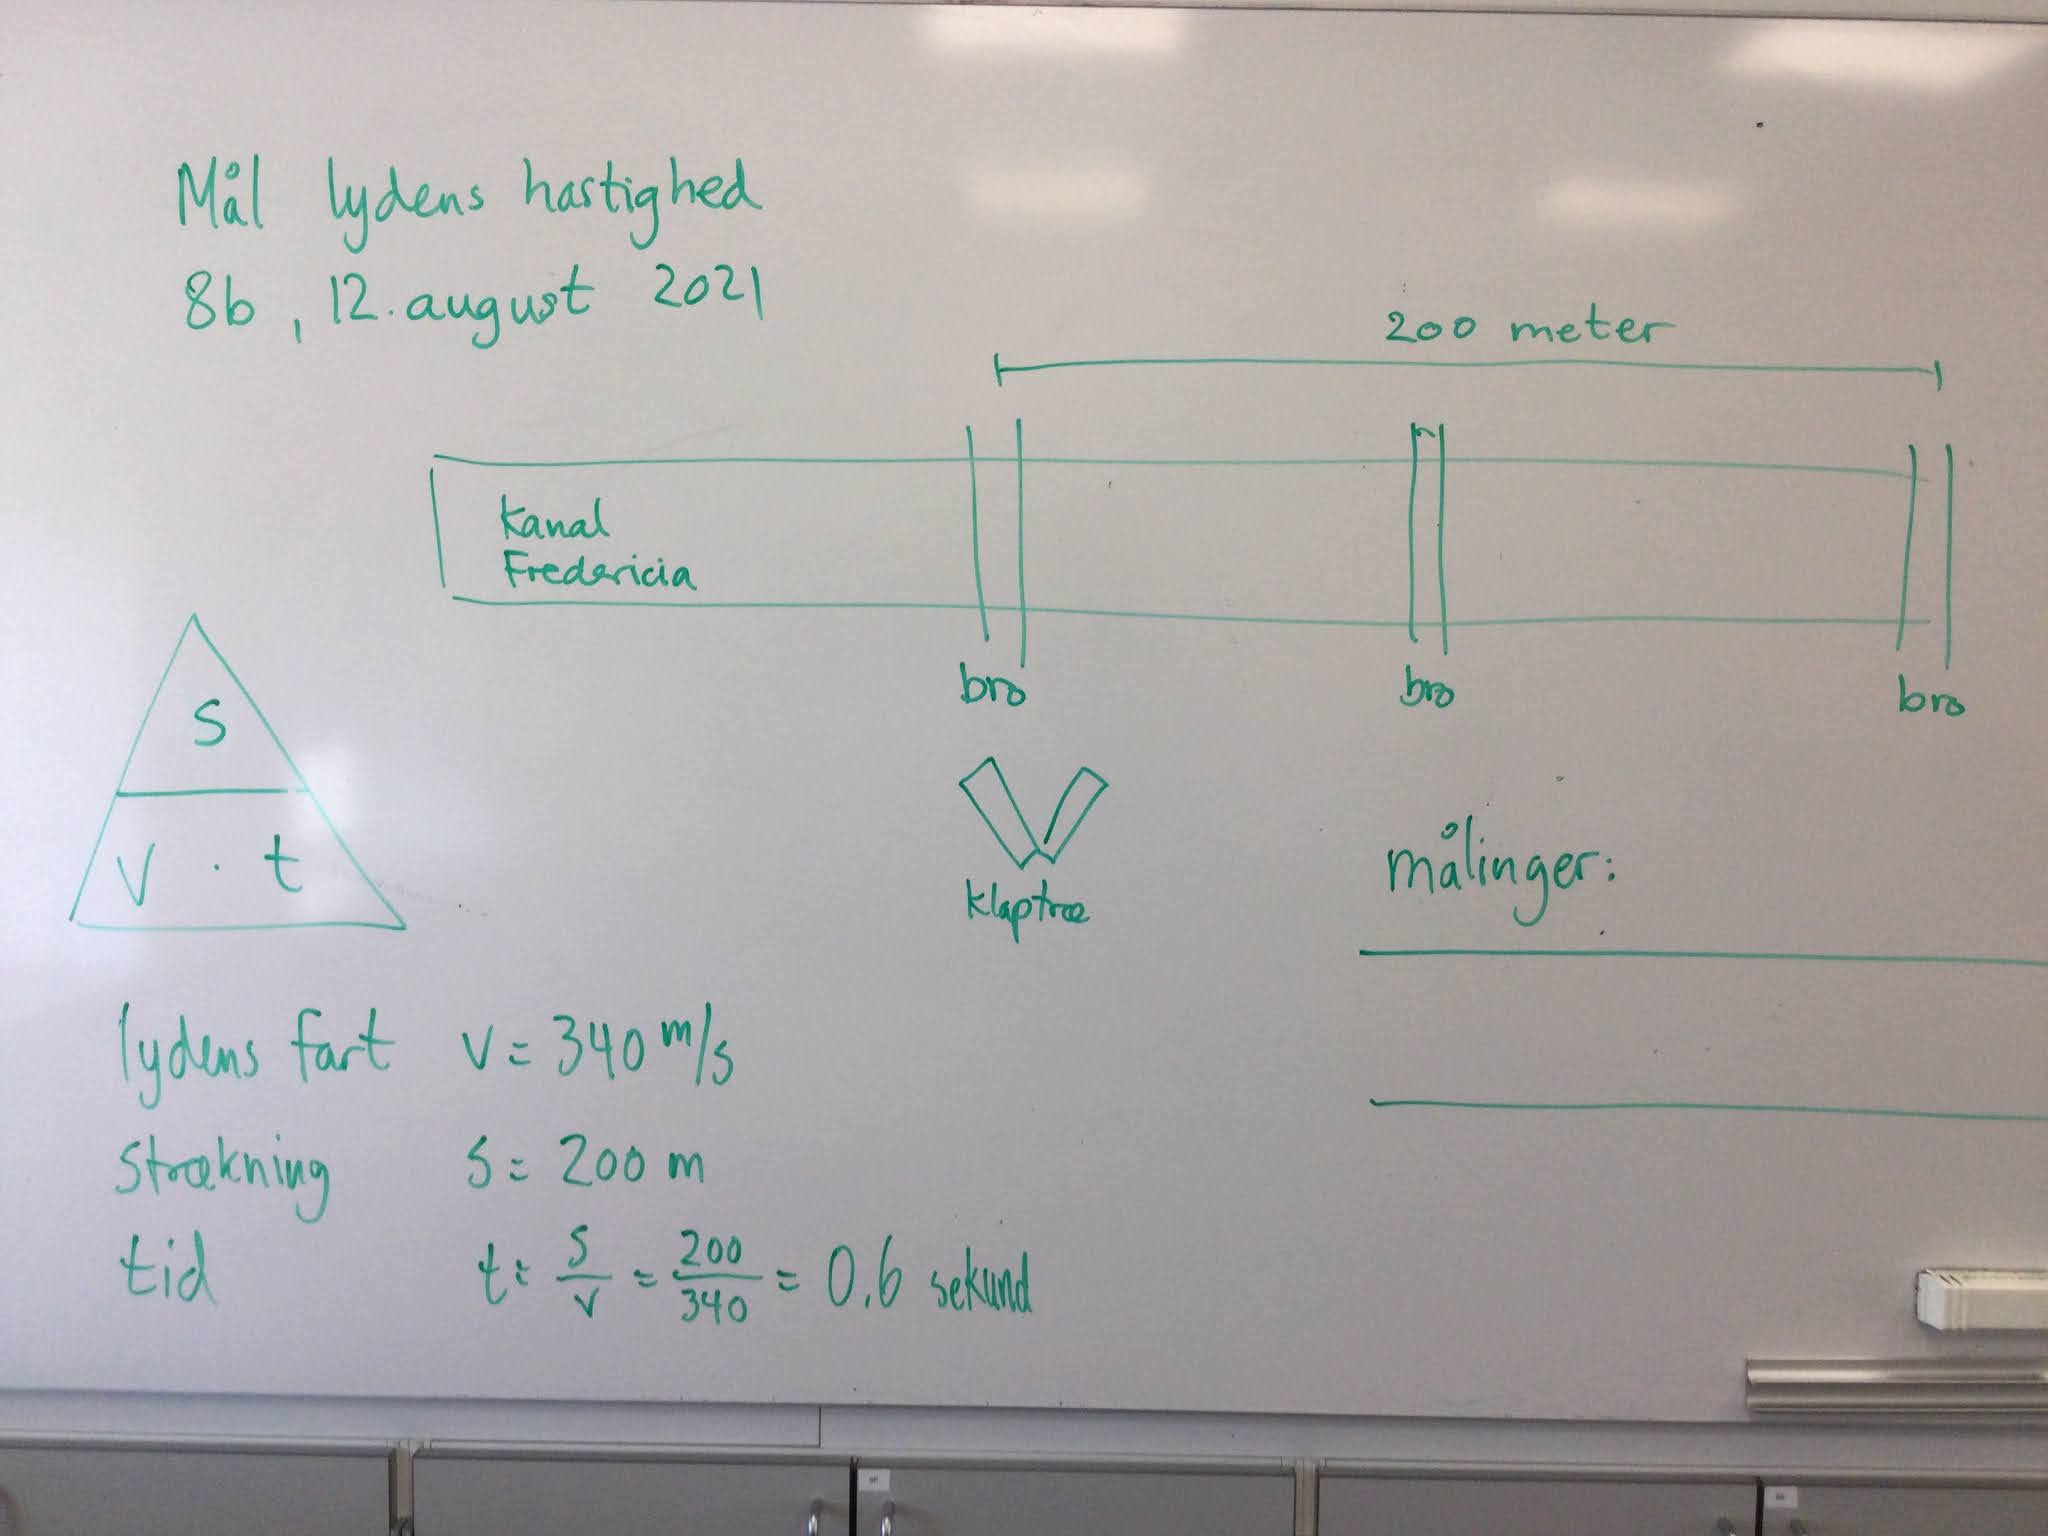 Mål lydens hastighed
8b, 12. august 2021
200 meter
Kanal
Fredericia
bro
bro
bro
S
V · t
klaptræ
målinger:
lydens fart v = 340 m/s
strækning s = 200 m
tid t = s/v = 200/340 = 0.6 sekund